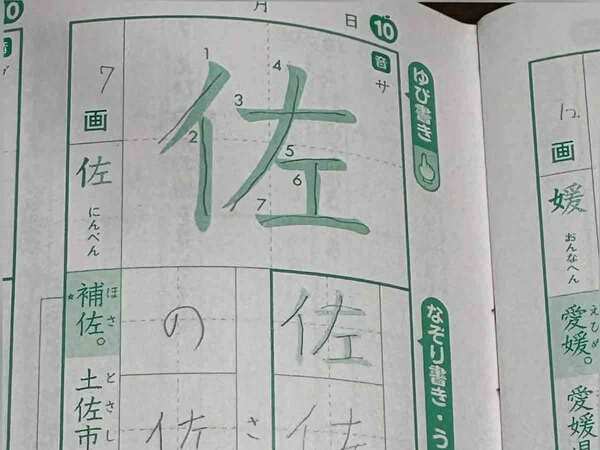 月
日
10
音
サ
ゆび書き
佐
1
2
3
4
5
6
7
7画
佐
にんべん
補佐。
ほさ
土佐市
とさし
なぞり書き・う
佐
佐
さ
の
佐
12画
媛
おんなへん
愛媛。
えひめ
愛媛県